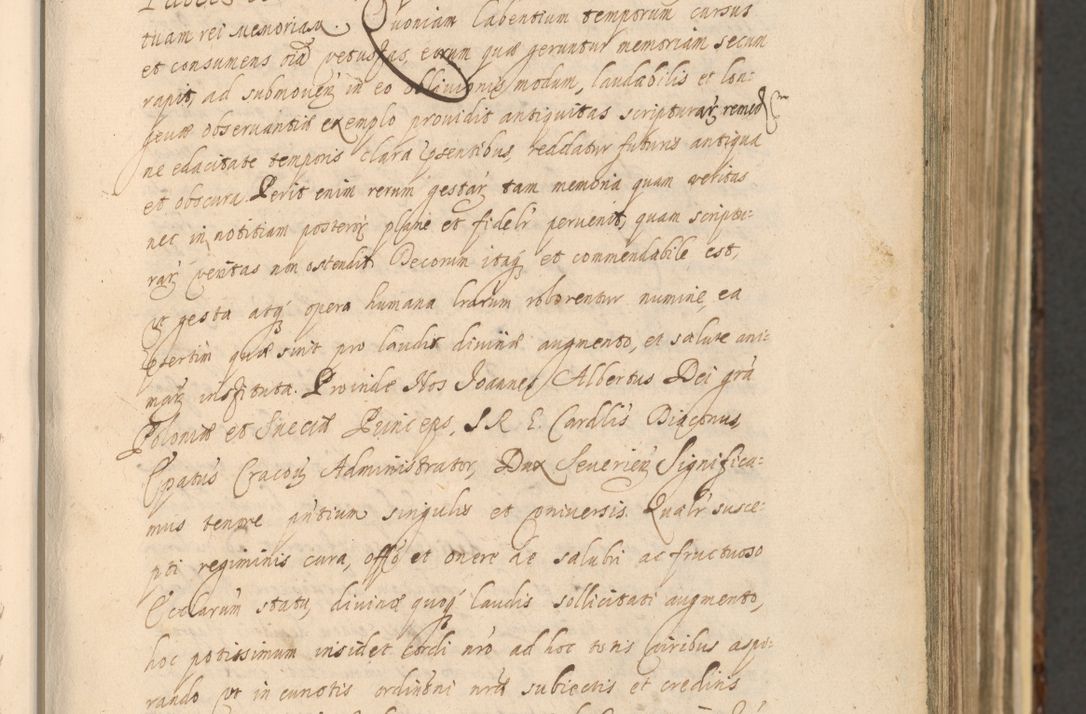 tuam rei memoriam. Quoniam labentium temporum cursus
et consumens oĩa vetustas, eorum quæ geruntur memoriam secum
rapit, ad submovenꝝ in eo oblivionis modum, laudabilis et lon-
gevæ observantiæ exemplo providit antiquitas scripturarꝝ remediũ
ne edacitate temporis clara pͣsentibus, reddatur futuris antiqua
et obscura. Perit enim rerum gestarꝝ tam memoria quam veritas
nec in notitiam posterorꝝ plane et fidelr̃ pervenit, quam scriptu-
rarꝝ veritas non ostendit. Decorum itaqꝫ et commendabile est,
ut gesta atqꝫ opera humana lr̃arum roborentur numine, ea
pͣsertim quæ sunt pro laudis divinæ augmento, et salute ani-
marꝝ instituta. Proinde Nos Joannes Albertus Dei grã
Poloniæ et Sueciæ Princeps, S. R. E. Cardlis Diaconus,
Epatus Cracovꝝ Administrator, Dux Severienꝝ Significa-
mus tenore pñtium singulis et universis. Qualr̃ susce-
pti regiminis cura, offõ et onere de salubri ac fructuoso
Ecclarum statu, divinæ quoqꝫ laudis sollicitati augmento,
hoc potissimum insidet cordi nr̃o ad hoc totis viribus aspi-
rando ut in cunctis ordinõni nr̃æ subiectis et creditis